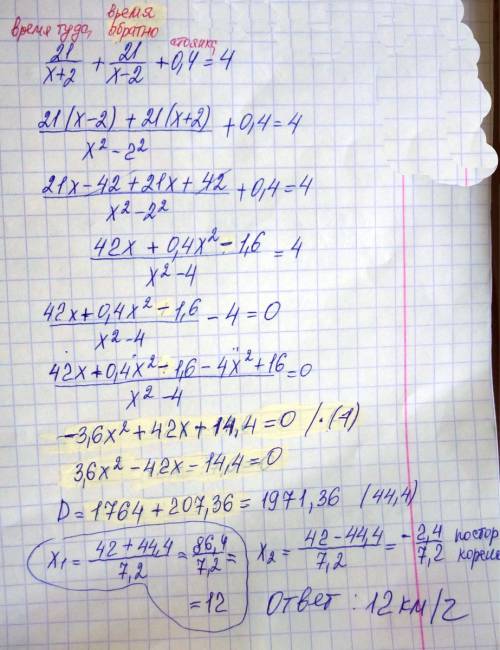 время туда, время обратно стоянка
21/(x+2) + 21/(x-2) + 0,4 = 4
(21(x-2) + 21(x+2))/(x²-2²) + 0,4 = 4
(21x - 42 + 21x + 42)/(x²-2²) + 0,4 = 4
(42x + 0,4x² - 1,6)/(x²-4) = 4
(42x + 0,4x² - 1,6)/(x²-4) - 4 = 0
(42x + 0,4x² - 1,6 - 4x² + 16)/(x²-4) = 0
-3,6x² + 42x + 14,4 = 0 /·(-1)
3,6x² - 42x - 14,4 = 0
D = 1764 + 207,36 = 1971,36 (44,4)
x₁ = (42 + 44,4)/7,2 = 86,4/7,2 = = 12
x₂ = (42 - 44,4)/7,2 = -2,4/7,2 постор корен
Ответ: 12 км/г